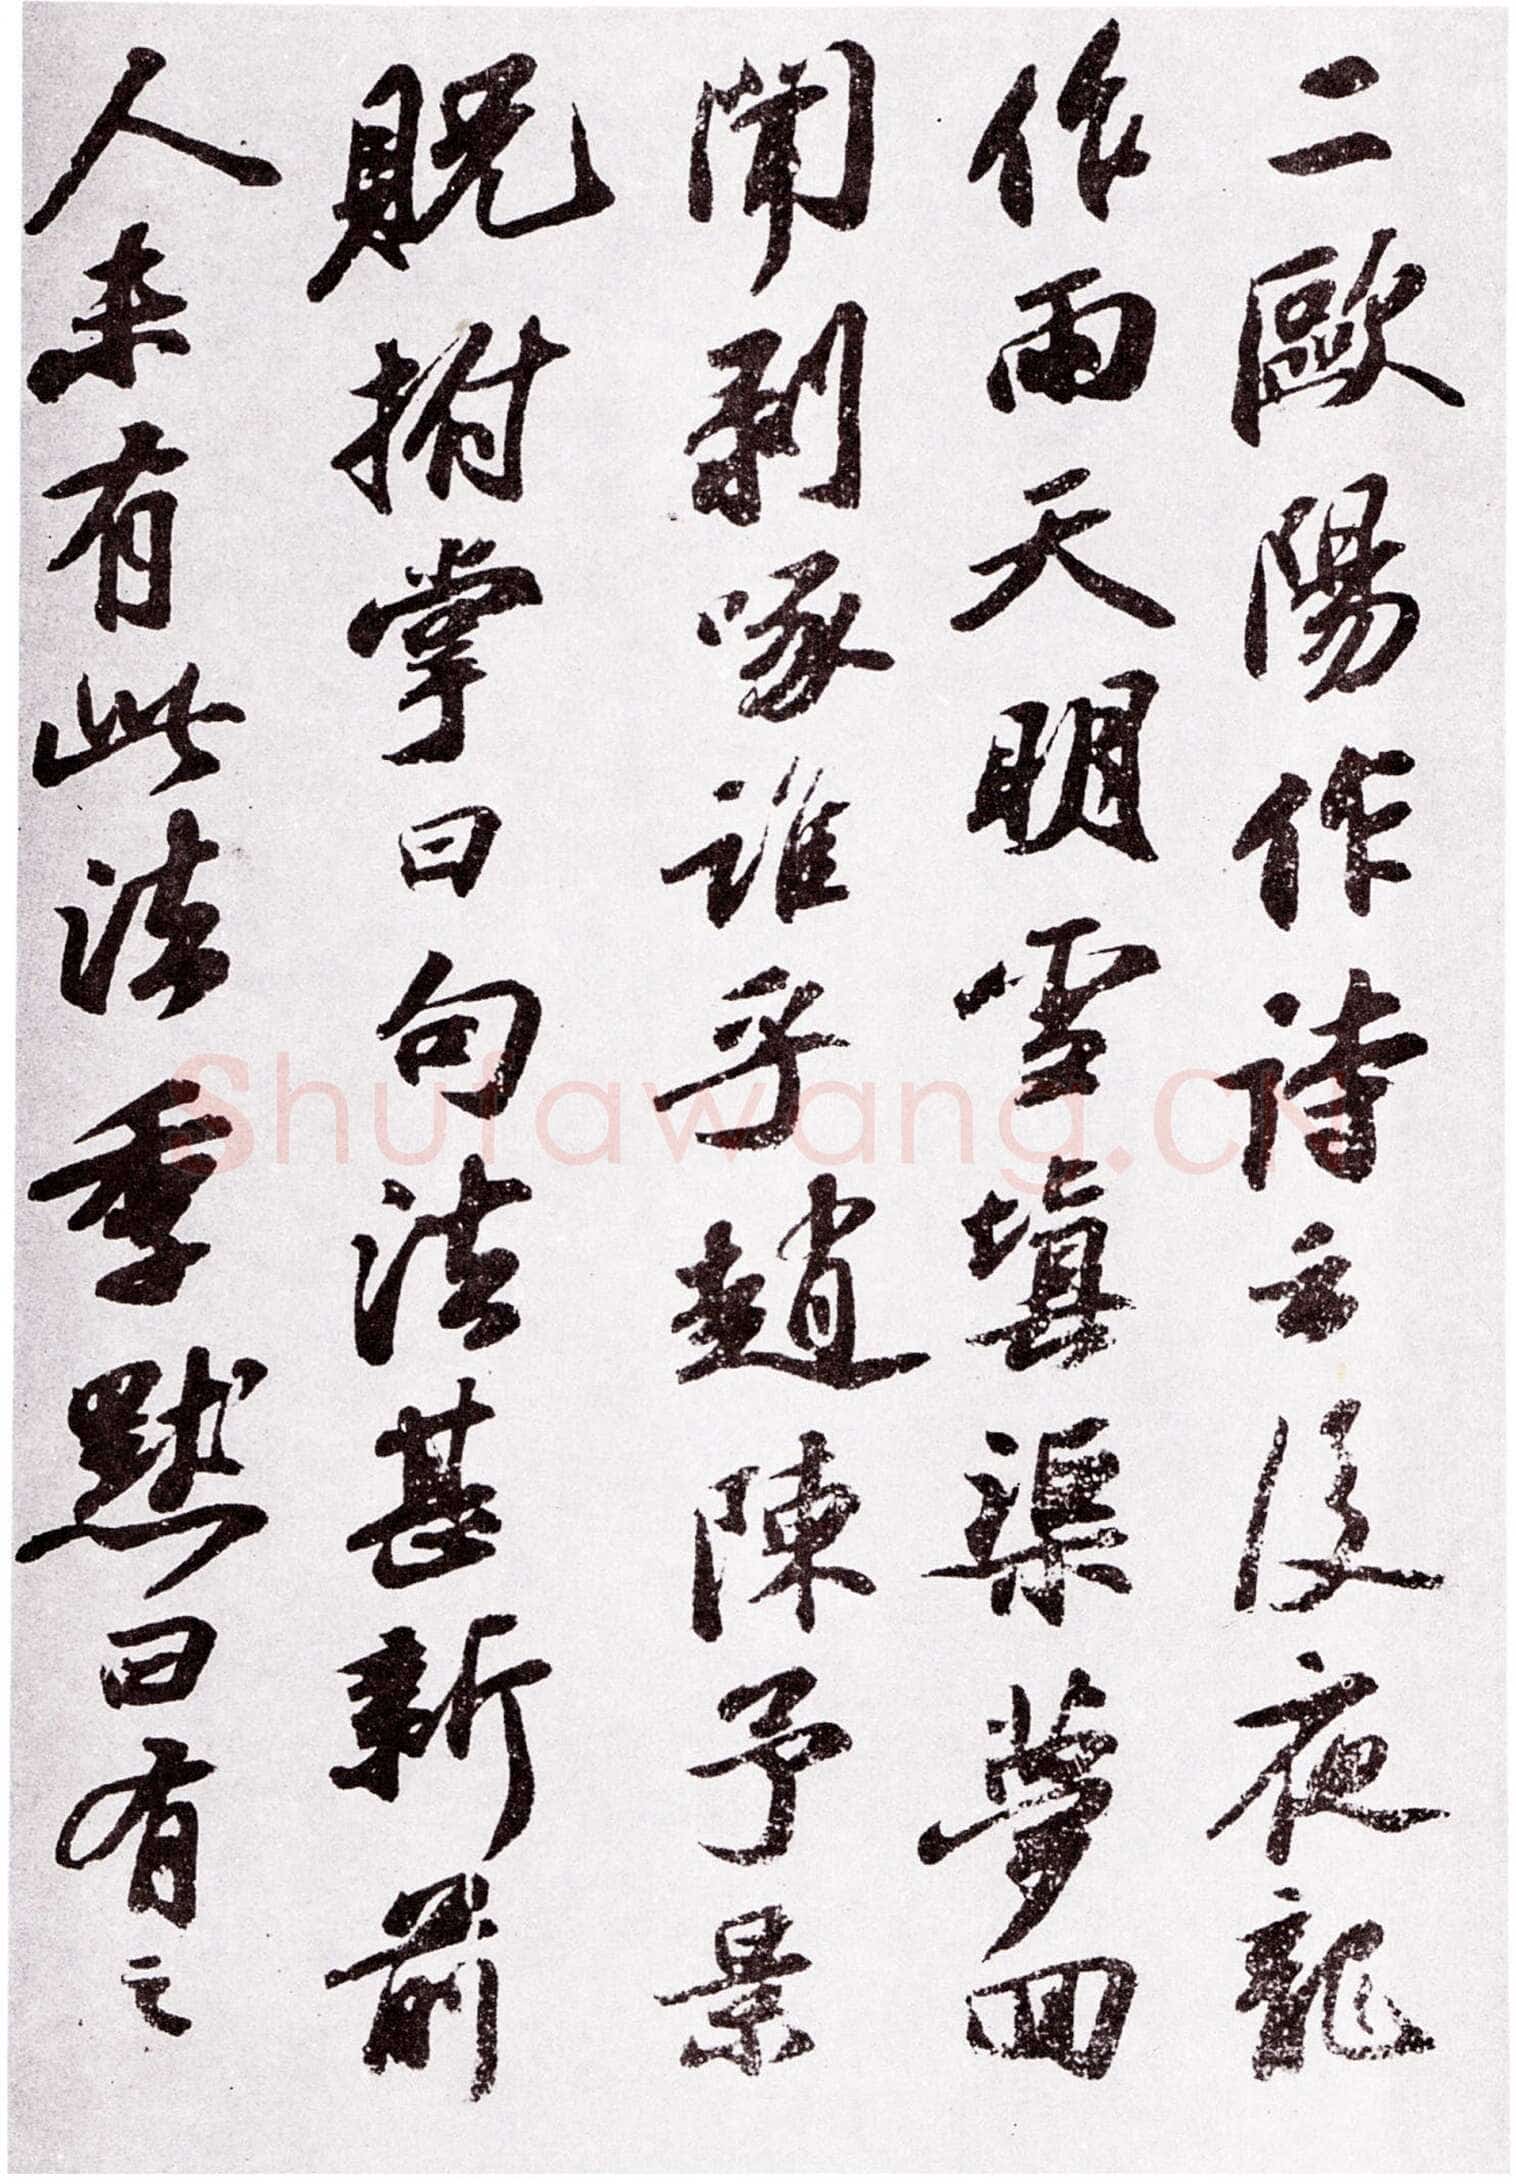 二歐陽作詩云後夜龍
作雨天明雪填渠夢回
聞剥啄誰乎趙陳予景
貺拊掌曰句法甚新前
人未有此法季默曰有之
Shufawang.CN